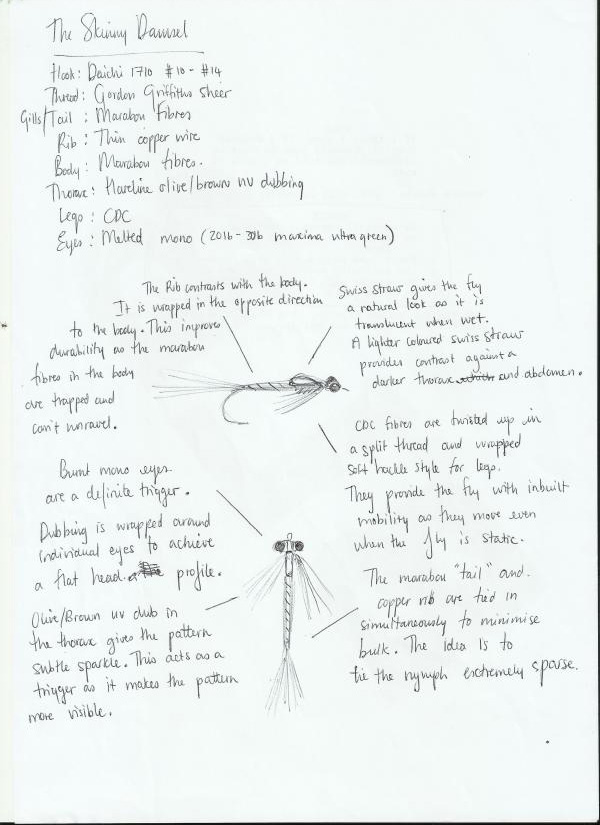 The Skinny Damsel
Hook: Daichi 1710 #10 - #14
Thread: Gordon Griffiths Sheer
Gills/Tail: Marabou Fibres
Rib: Thin copper wire
Body: Marabou fibres.
Thorax: Hareline olive/brown uv dubbing
Legs: CDC
Eyes: Melted mono (20lb - 30lb maxima ultra green)
The Rib contrasts with the body.
It is wrapped in the opposite direction
to the body. This improves
durability as the marabou
fibres in the body
are trapped and
can't unravel.
Swiss Straw gives the fly
a natural look as it is
translucent when wet.
A lighter coloured swiss straw
provides contrast against a
darker thorax and abdomen.
CDC fibres are twisted up in
a split thread and wrapped
soft hackle style for legs.
They provide the fly with inbuilt
mobility as they move even
when the fly is static.
Burnt mono eyes
are a definite trigger.
Dubbing is wrapped around
individual eyes to achieve
a flat head profile.
Olive/Brown uv dub in
the thorax gives the pattern
subtle sparkle. This acts as a
trigger as it makes the pattern
more visible.
The marabou "tail" and
copper rib are tied in
simultaneously to minimise
bulk. The idea is to
tie the nymph extremely sparse.